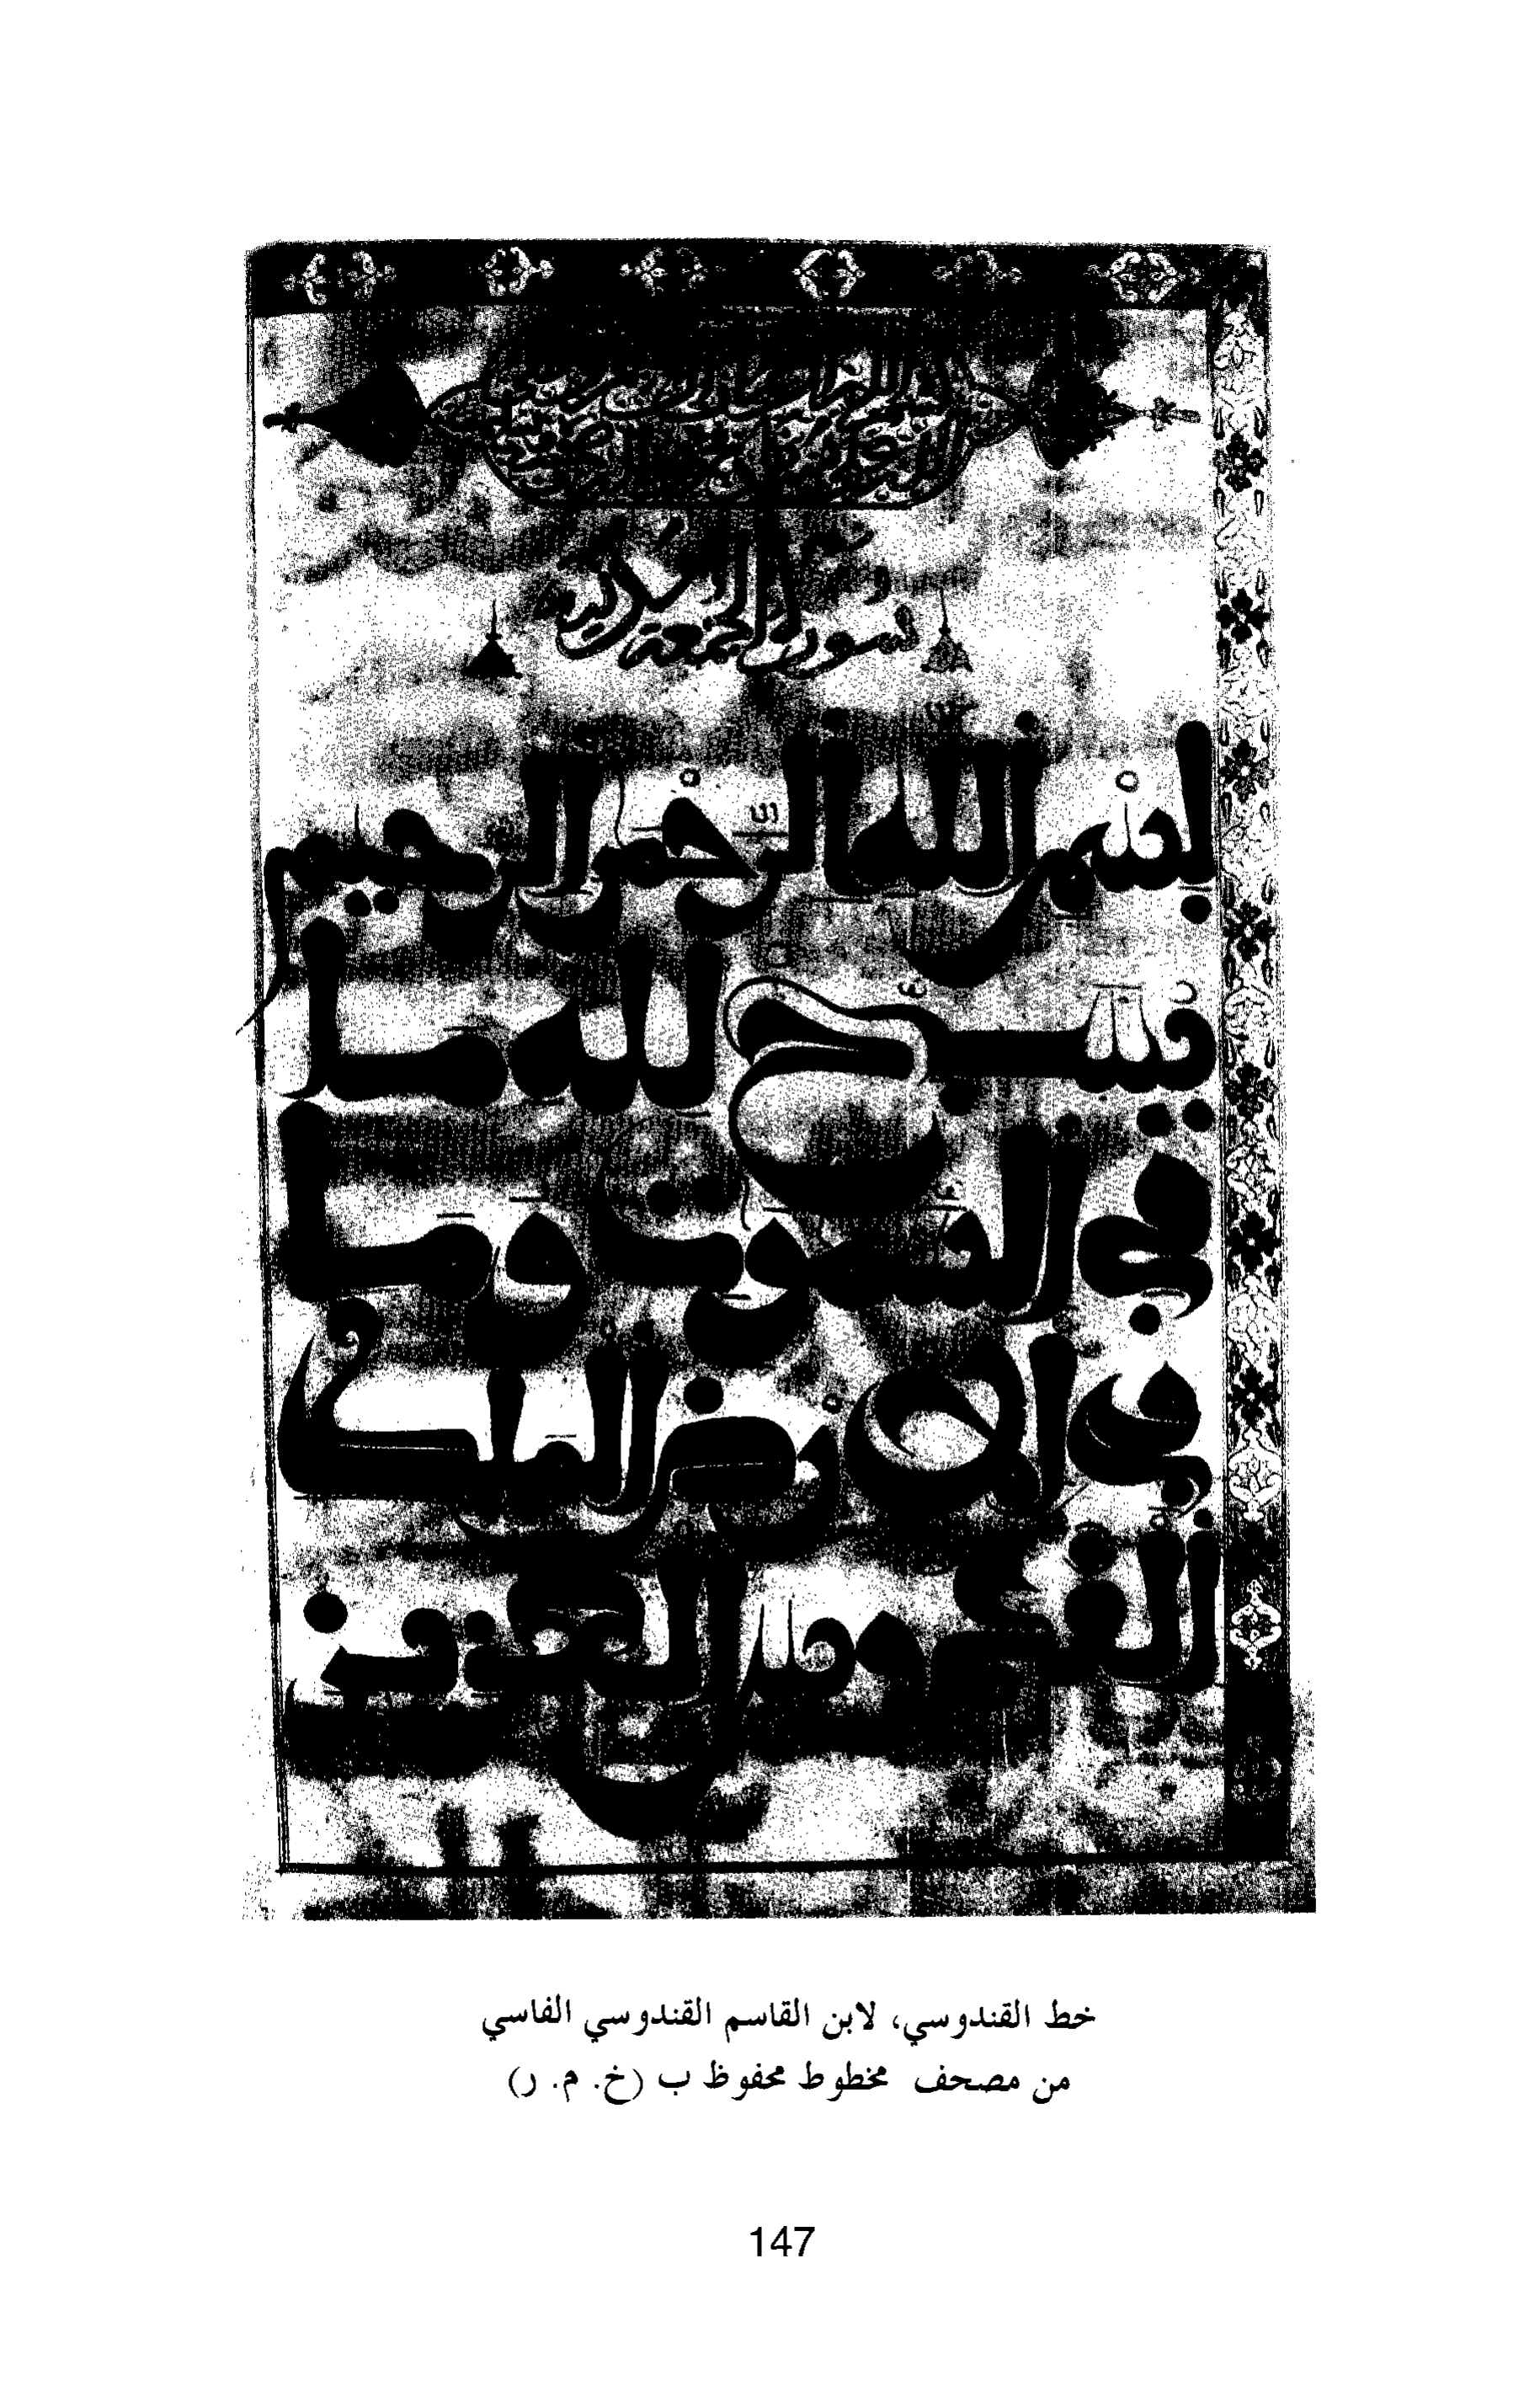 سورة الجمعة
بسم الله الرحمن الرحيم
يسبح لله ما
في السموت وما
في الارض الملك
القدوس العزيز
خط القندوسي، لابن القاسم القندوسي الفاسي
من مصحف مخطوط محفوظ ب (خ. م. ر)
147